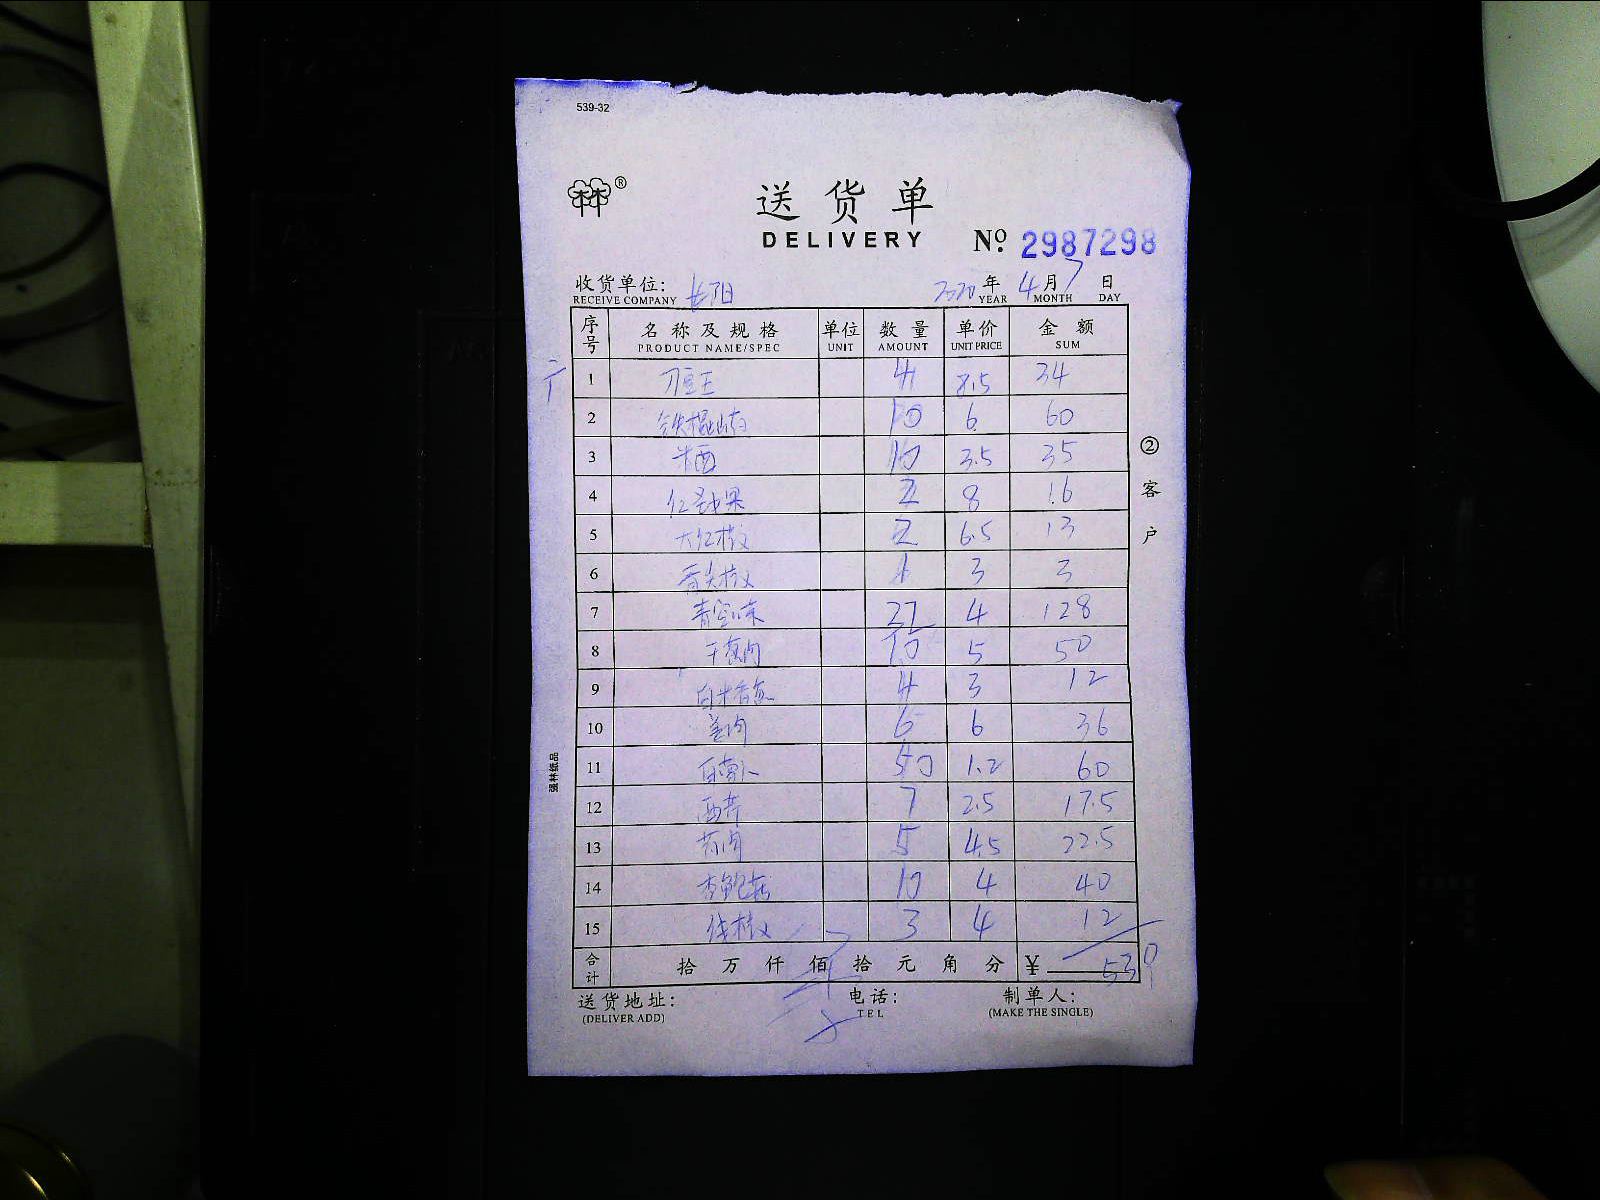 539-32
®
送货单
DELIVERY
№ 2987298
收货单位: 长阳 2020年4月7日
RECEIVE COMPANY YEAR MONTH DAY
序号 名称及规格 单位 数量 单价 金额
PRODUCT NAME/SPEC UNIT AMOUNT UNIT PRICE SUM
1 刀豆王 4 8.5 34
2 铁棍山药 10 6 60
3 米西 10 3.5 35
4 红圣女果 2 8 16
5 大红椒 2 6.5 13
6 青尖椒 1 3 3
7 4 128
8 10 5 50
9 4 3 12
10 姜肉 6 6 36
11 白萝卜 50 1.2 60
12 西芹 7 2.5 17.5
13 5 4.5 22.5
14 杏鲍菇 10 4 40
15 线椒 3 4 12
合计 拾万仟佰拾元角分 ¥ 539
送货地址: 电话: 制单人:
(DELIVER ADD) TEL (MAKE THE SINGLE)
②客户
强林纸品